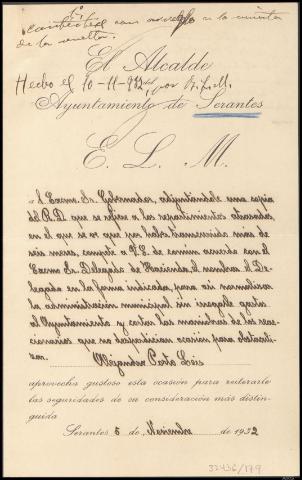 contéstese con arreglo a la minuta
de la vuelta.
El Alcalde
Hecho el 10-11-932, por B.L.M.
Ayuntamiento de Serantes
B. L. M.
al Excmo. Sr. Gobernador, adjuntándole una copia
del R.D. que se refiere a los repartimientos atrasados,
en el que se ve que por haber transcurrido más de
seis meses, compete a V.E. de común acuerdo con el
Excmo Sr. Delegado de Hacienda, el nombrar el De-
legado en la forma indicada, para así normalizar
la administración municipal sin irrogarle gasto
al Ayuntamiento y cortar las maniobras de los reac-
cionarios que no desperdician ocasión para obstaculi-
zar.
Alejandro Porto Leis
aprovecha gustoso esta ocasión para reiterarle
las seguridades de su consideración más distin-
guida
Serantes 5 de Noviembre de 1932
32436/179